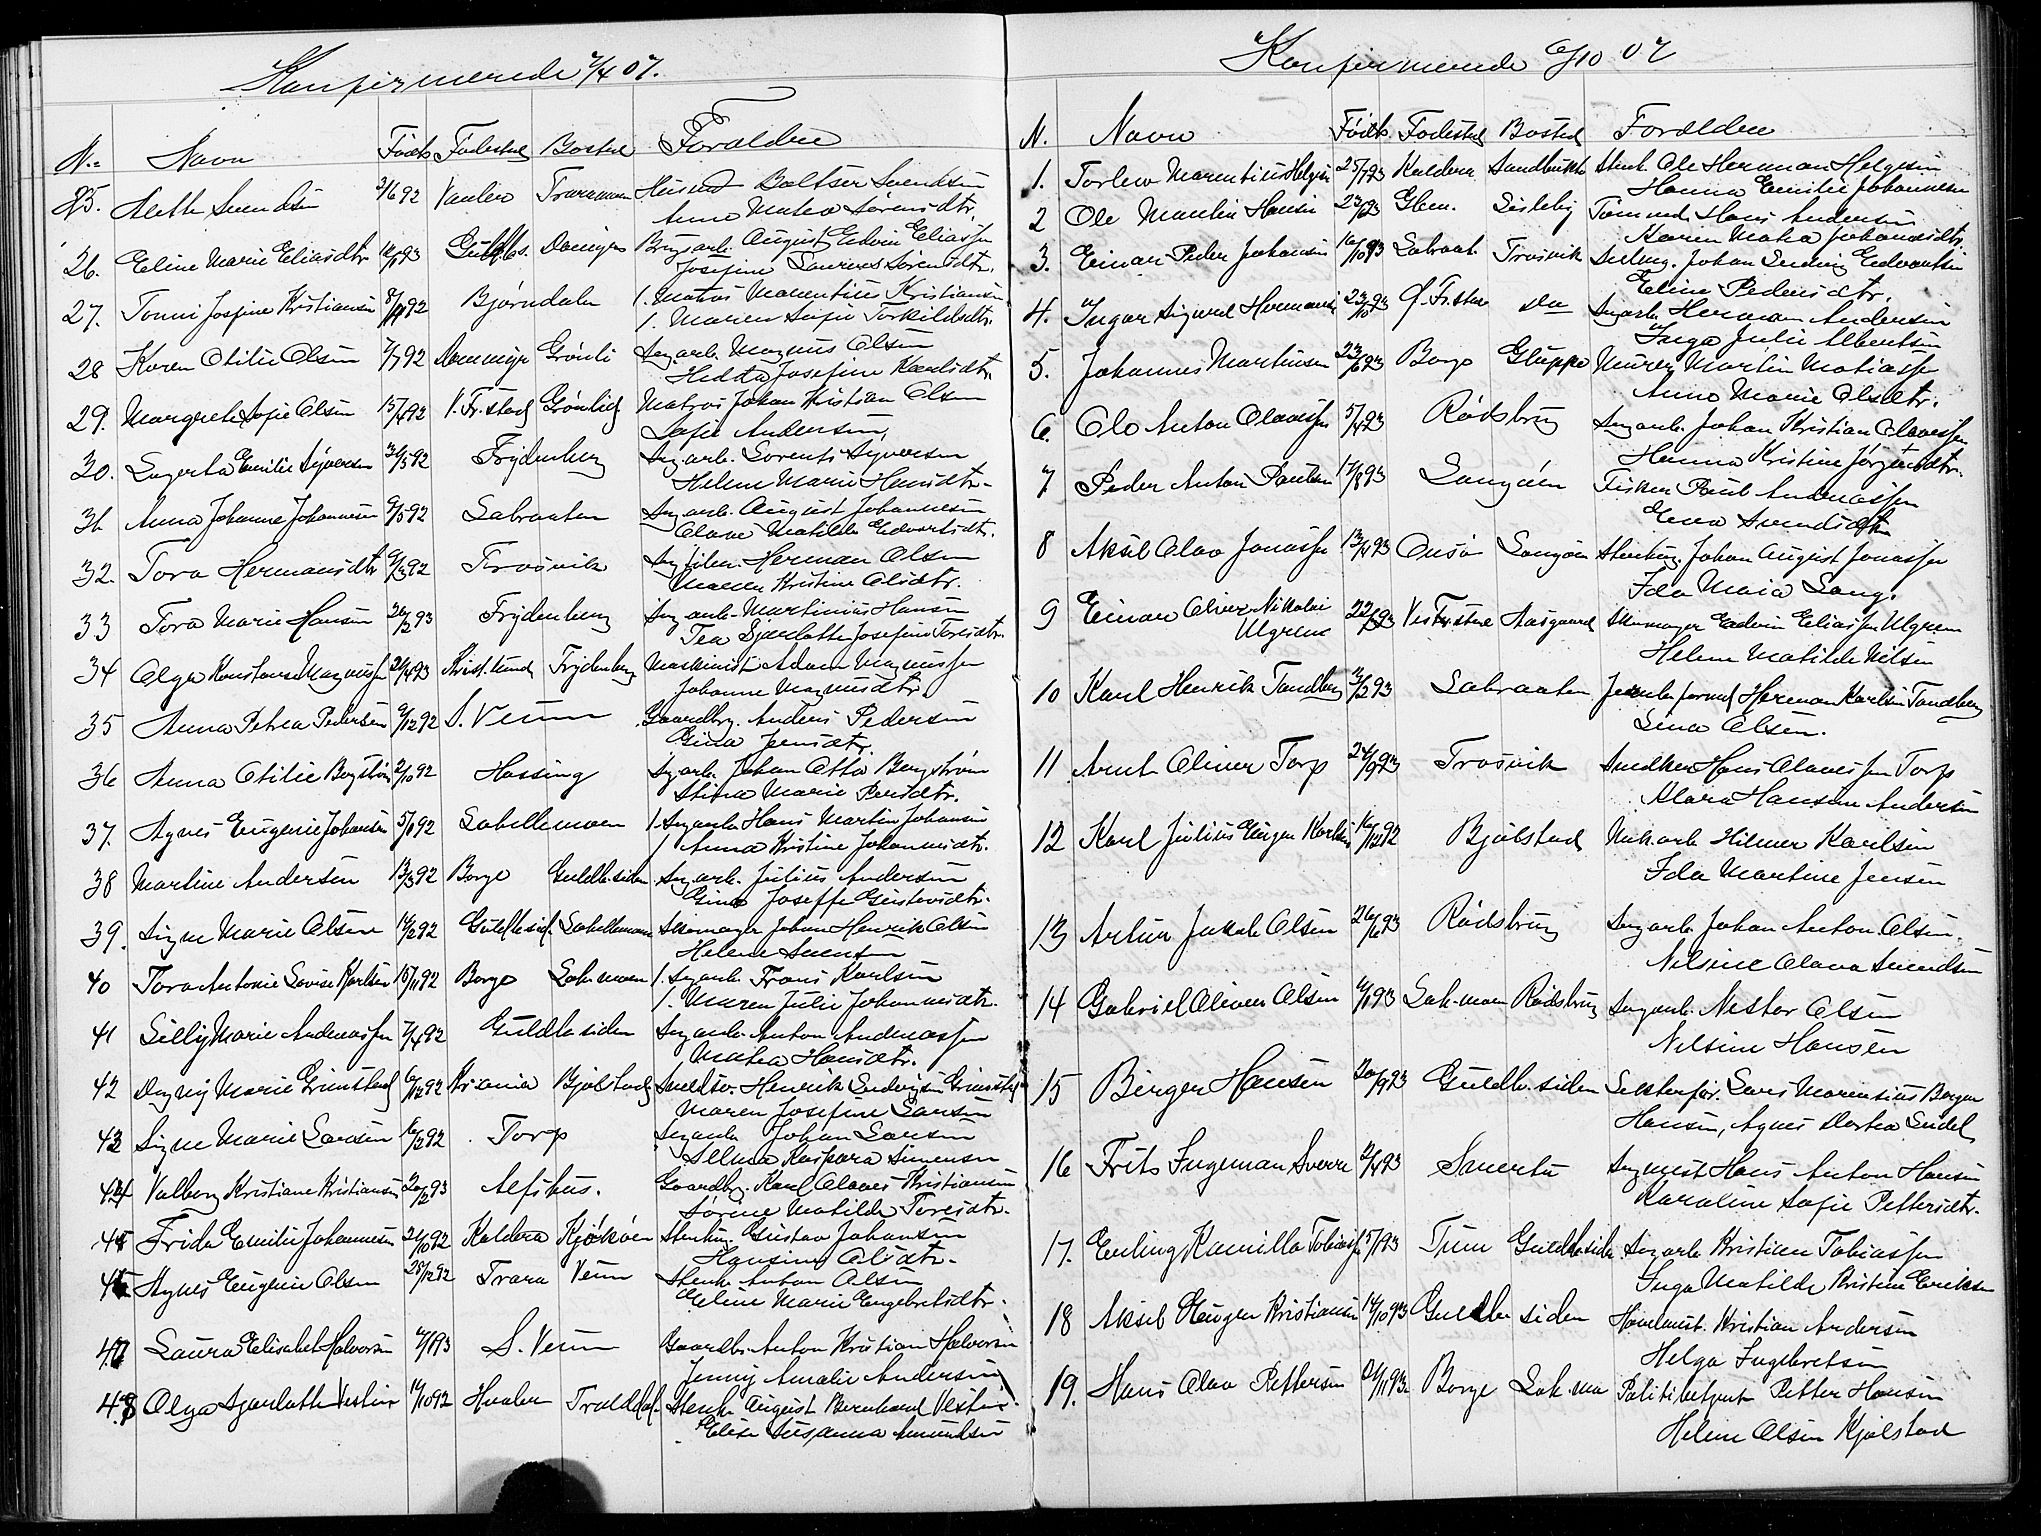 Konfirmerede 7/4 07.
N. Navn Født Fødested Bosted Forældre
25. Aleth Svendsen 3/6 92 Vauler Traramoen Husmd Baltser Svendsen
Anne Matea Sørensdtr.
26. Eline Marie Eliasdtr 14/1 93 Guldbs. Damyren Brugsarb. August Edvin Eliassen
Josefine Laurense Sørensdtr.
27. Tomni Josfine Kristiansen 8/11 92 Bjørndalen 1. Matros Marentius Kristiansen
1. Maren Sofie Torkildsdtr.
28 Karen Otilie Olsen 7/7 92 Dammyr Grønli Sagarb. Magnus Olsen
Hedda Josefine Karlsdtr.
29. Margrete Sofie Olsen 15/4 92 V. Fr.stad Grønlid Matros Johan Kristian Olsen
Sofie Andersen,
30. Ingerta Emilie Syversen 31/5 92 Frydenberg Sagarb. Lorents Syversen
Helene Marie Hansdtr.
31. Anna Johanne Johannesen 9/5 92 Labraaten Sagarb. August Johannesen
Olave Matilde Edvartsdtr.
32. Tora Hermansdtr 9/3 92 Trosvik Sagfiler Herman Olsen
Maren Kristine Olsdtr.
33 Tora Marie Hansen 26/2 93 Frydenberg Sagarb. Martinius Hansen
Tea Sjarlotte Josefine Toresdtr.
34 Olga Konstanse Magnussen 21/4 93 Krist.sund Frydenberg Maskinist Adam Magnussen
Johanne Magnusdtr
35 Anna Petrea Pedersen 9/12 92 S. Veum Gaardbr. Anders Pedersen
Gina Jensdtr.
36 Anna Otilie Bergstrøm 2/10 92 Hassing Sagarb. Johan Otto Bergström
Stina Marie Persdtr.
37. Agnes Eugenie Johansen 5/1 92 Labellemoen 1. Sagarb. Hans Martin Johansen
1. Anna Kristine Johannesdtr.
38 Martine Andersen 13/3 92 Borge Guldb.siden Sagarb. Julius Andersen
Gina Joseffe Gustavsdtr.
39. Signe Marie Olsen 14/2 92 Guldb.sid. Labellemoen Skomager Johan Henrik Olsen
Helene Svensen
40 Tora Antonie Lovise Karlsen 15/11 92 Borge Lab.moen 1. Sagarb. Frans Karlsen
1. Maren Julie Johannesdtr.
41 Silly Marie Andreassen 7/4 92 Guldb.siden Sagarb. Anton Andreassen
Matea Hansdtr.
42 Dagny Marie Grimstad 6/12 92 Kr.ania Bjølstad Snedker Henrik Ludvigsen Grimstad
Maren Josefine Larsen
43 Signe Marie Larsen 16/2 92 Torp Sagarb. Johan Larsen
Selma Kaspara Simensen
44 Valborg Kristiane Kristiansen 20/2 93 Alfshus. Gaardbr. Karl Olaves Kristiansen
Sørine Matilde Toresdtr.
45 Frida Emilie Johannesen 31/10 92 Kaldera Kjøkøen Stenhug. Gustav Johansen
Hansine Olsdtr.
46 Agnes Eugenie Olsen 28/12 92 Trara Veum Stenh. Anton Olsen
Eline Marie Engebretsdtr.
47 Laura Elisabet Halvorsen 4/1 93 S. Veum Gaardbr. Anton Kristian Halvorsen
Jenny Amalie Andersen
48 Olga Sjarlotte Vestli 14/10 92 Hvaler Trolddal. Stenh. August Bernhard Vestli.
Elise Susanna Amundsen
Konfirmerede 6/10 07
N. Navn Født Fødested Bosted Forældre
1. Torlew Marentius Helgesen 25/7 93 Kaldera Sandbukta Stenh. Ole Herman Helgesen
Hanna Emilie Johannesen
2 Ole Maulin Hansen 23/2 93 Glem. Lisleby Tømmed. Hans Andersen
Karen Matea Johannesdtr.
3. Einar Peder Johansen 16/10 93 Labraat. Trosvik Sulag. Johan Ludvig Edvardsen
Eline Pedersdtr.
4. Ingar Sigurd Hermansen 23/10 93 Ø. Fr.stad do Sagarb. Herman Andersen
Inga Julie Albertsen
5. Johannes Martinsen 23/6 93 Borge Gluppe Murer Martin Matiassen
Anne Marie Olsdtr.
6. Ole Anton Olavessen 5/4 93 Rødsbrug Sagarb. Johan Kristian Olavessen
Hanna Kristine Jørgensdtr.
7 Peder Anton Paulsen 17/8 93 Langøen Fisker Paul Andreassen
Emma Svendsdtr
8 Aksel Olav Jonassen 13/4 93 Onsø Langøen Stenhug. Johan August Jonassen
Ida Maia Lang.
9 Einar Oliver Nikolai Ulgrene 22/7 93 Ves Fr.stad Aasgaard Skomager Edvin Eliassen Ulgrem
Helene Matilde Nilsen
10 Karl Henrik Tandberg 3/2 93 Labraaten Herman Karlsen Tandberg
Lina Olsen.
11. Arnt Oliver Torp 24/9 93 Trosvik Snedker Hans Olavessen Torp
Klara Hansine Andersen
12 Karl Julius Eugen Karlsen 16/12 92 Bjølstad Mek.arb. Hilmer Karlsen
Ida Martine Jensen
13 Artur Jakob Olsen 26/6 93 Rødsbrug Sagarb. Johan Anton Olsen
Nilsine Olava Svendsen
14 Gabriel Oliver Olsen 4/1 93 Lab.moen Rødsbrug Sagarb. Nestor Olsen
Nilsine Hansen
15 Birger Hansen 20/9 93 Guldb. siden Lars Marensius Borgen
Hansen, Agnes Dortea Seidel
16 Frits Ingeman Sverre 2/4 93 Smertu Sagmest Hans Anton Hansen
Karoline Sofie Pettersdtr.
17. Erling Kamillo Tobiassen 15/7 93 Tune Guldb.sid. Sagarb. Kristian Tobiassen
Inga Matilde Kristine Eriksen
18 Aksel Eugen Kristiansen 14/10 93 Guldb siden Høvelmest. Kristian Andersen
Helga Ingebretsen
19. Hans Olav Pettersen 21/11 93 Borge Lab.mo Politibetjent Petter Hansen
Helene Olsen Kjølstad